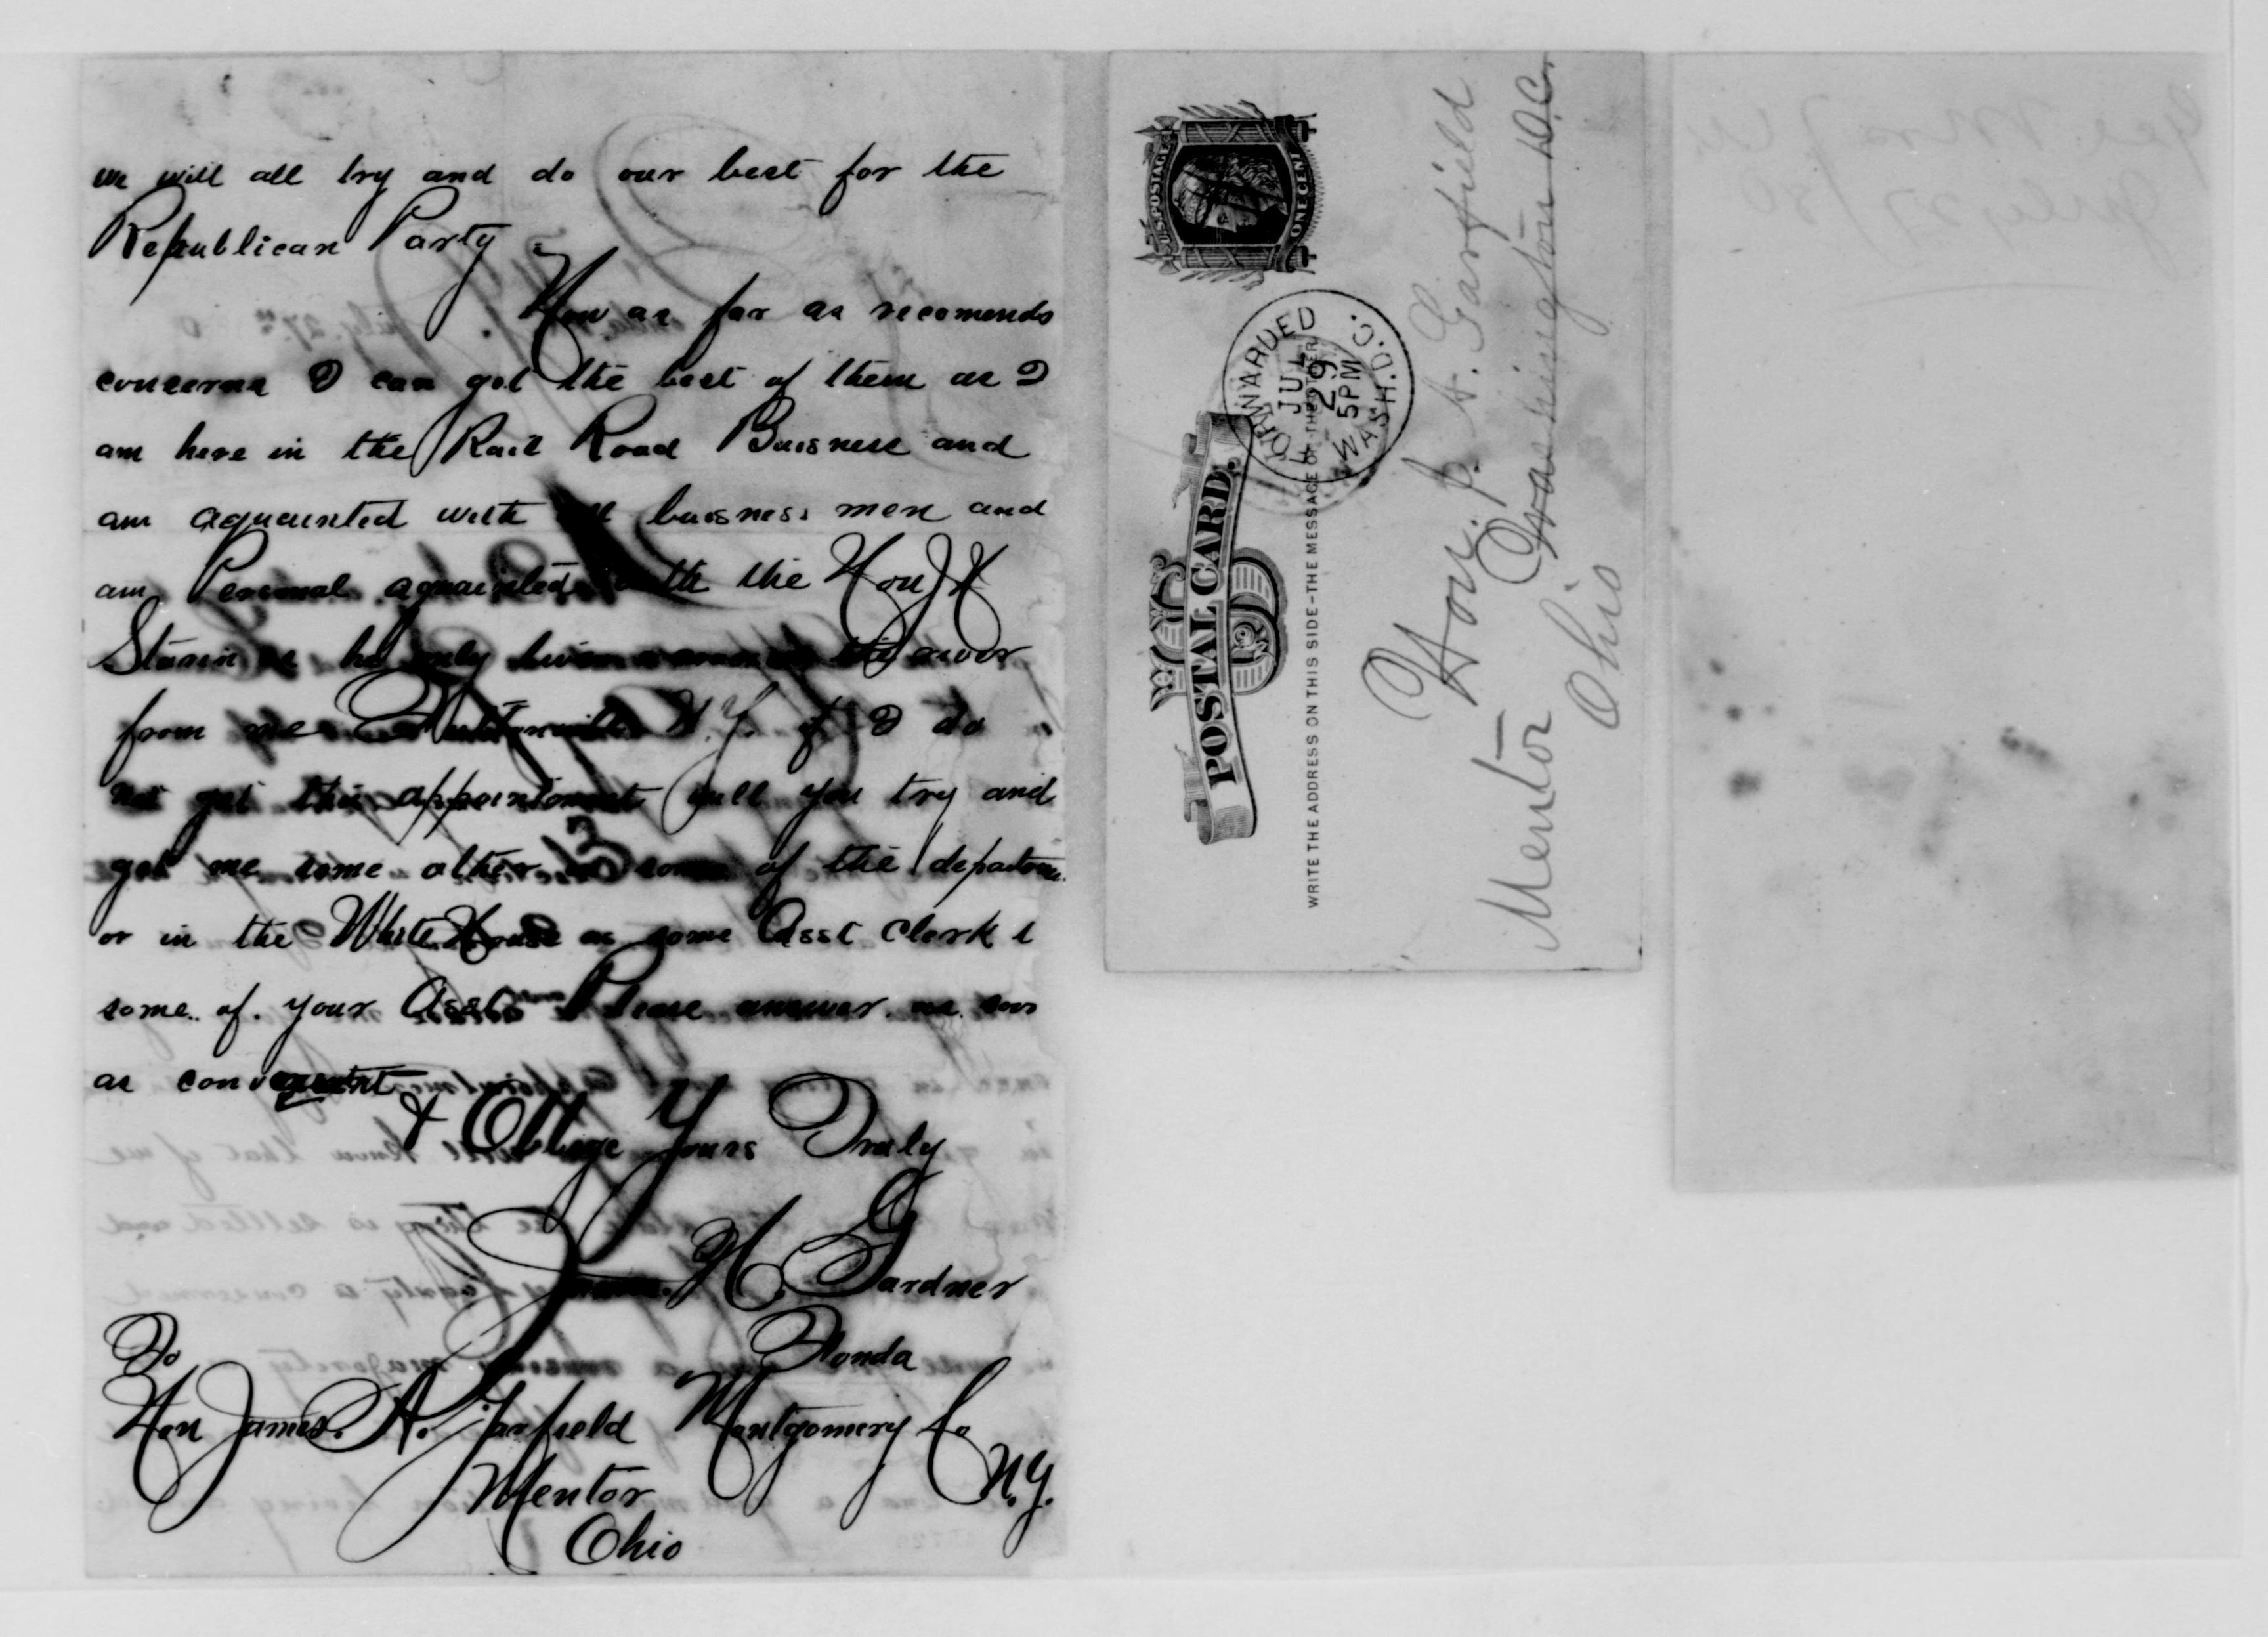 we will all try and do our best for the
Republican Party
Now as far as recomends
concerns I can get the best of them as I
am here in the Rail Road Buisness and
am aquainted with all buisness men and
am Personal aquainted with the Hon J H
Starin as he only lives the river
from me Fultonville N.Y. if I do
not get this appointment will you try and
get me some other in some of the departm
or in the White House as some Asst Clerk t
some of your Assts Please answer me soon
as convenient
& Oblige Yours Truly
James H. Gardner
Fonda
Montgomery Co
N.Y.
To
Hon James A. Garfield
Mentor
Ohio
U.S. POSTAGE
ONE CENT
POSTAL CARD.
WRITE THE ADDRESS ON THIS SIDE-THE MESSAGE ON THE OTHER
FORWARDED
JUL
29
5PM
WASH.D.C.
Hon. J. A. Garfield
Washington D.C.
Mentor
Ohio